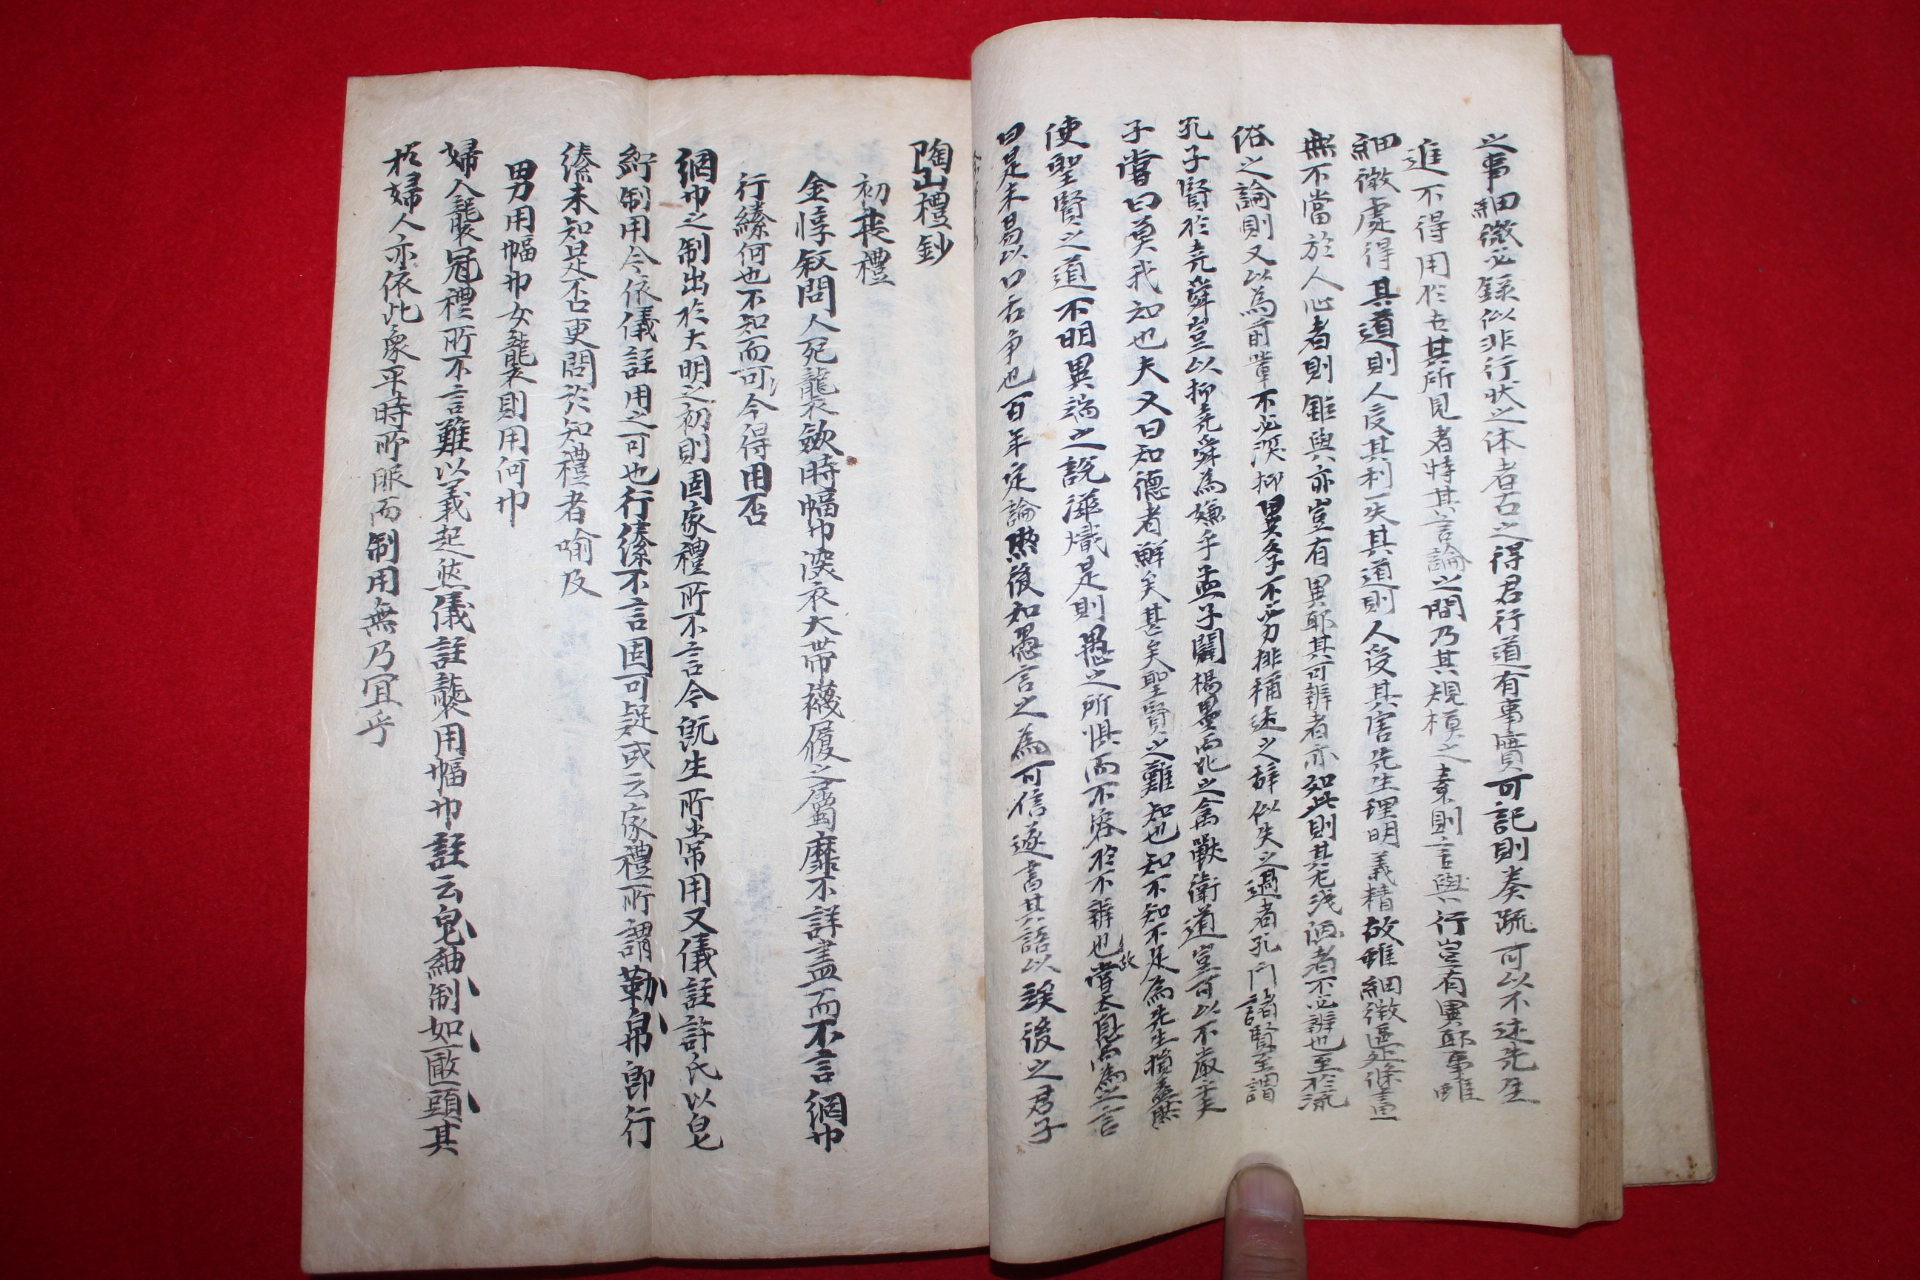 之事細微必錄似非行狀之体者古之得君行道有事實可記則奏疏可以不述先生
進不得用於世其所見者特其言論之間乃其規模之素則言與行豈有異耶事雖
細微處得其道則人受其利失其道則人受其害先生理明義精故雖細微區處條畫
無不當於人心者則雖與亦豈有異耶其可辨者亦如此則其尤淺陋者不必辨也至於流
俗之論則又以為前輩不必深抑異學不必力排稱述之辞似失之過者孔門諸賢至謂
孔子賢於堯舜豈以抑堯舜為嫌乎孟子闢楊墨而比之禽獸衛道豈可以不嚴乎夫
子嘗曰莫我知也夫又曰知德者鮮矣甚矣聖賢之難知也知不知不足為先生損益然
使聖賢之道不明異端之說滋熾是則愚之所惧而不容於不辨也故嘗太息而為之言
曰是未易以口舌争也百年定論然後知愚言之為可信遂書其語以俟後之君子
陶山禮鈔
初喪禮
金惇敍問人死襲衣斂時幅巾深衣大带襪履之屬靡不詳盡而不言網巾
行縢何也不知而可今得用否
網巾之制出於大明之初則固家禮所不言今既生所常用又儀註許氏以皂
紵制用今依儀註用之可也行縢不言固可疑或云家禮所謂勒帛即行
縢未知是否更問於知禮者喻及
男用幅巾女襲則用何巾
婦人襲冠禮所不言難以義起然儀註襲用幅巾註云皂紬制如匭頭其
於婦人亦依此象平時所服而制用無乃宜乎